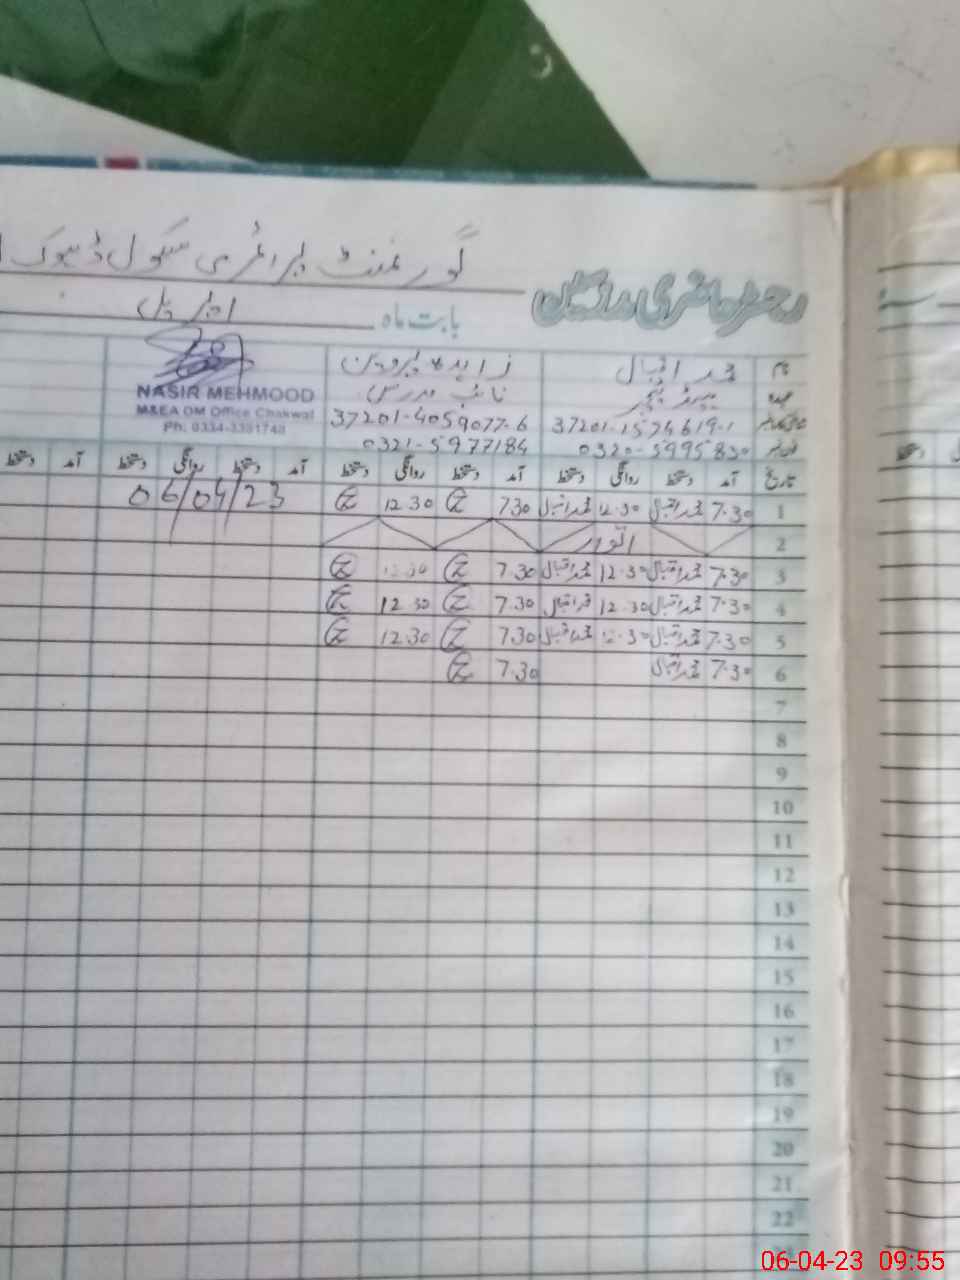 گورنمنٹ پرائمری سکول ڈھوک
رجسٹر حاضری مدرسین
بابت ماہ اپریل
نام محمد اقبال زاہدہ پروین
عہدہ ہیڈ ٹیچر نائب مدرس
37201-1574619-1 37201-4059077-6
فون نمبر 0320-5995830 0321-5977184
NASIR MEHMOOD
M&EA DM Office Chakwal
Ph: 0334-3391748
تاریخ آمد دستخط روانگی دستخط آمد دستخط روانگی دستخط آمد دستخط روانگی دستخط آمد دستخط
06/04/23
1 7.30 محمد اقبال 12.30 محمد اقبال 7.30 12.30
2 اتوار
3 7.30 محمد اقبال 12.30 محمد اقبال 7.30 12.30
4 7.30 محمد اقبال 12.30 محمد اقبال 7.30 12.30
5 7.30 محمد اقبال 12.30 محمد اقبال 7.30 12.30
6 7.30 محمد اقبال 7.30
7
8
9
10
11
12
13
14
15
16
17
18
19
20
21
22
06-04-23 09:55